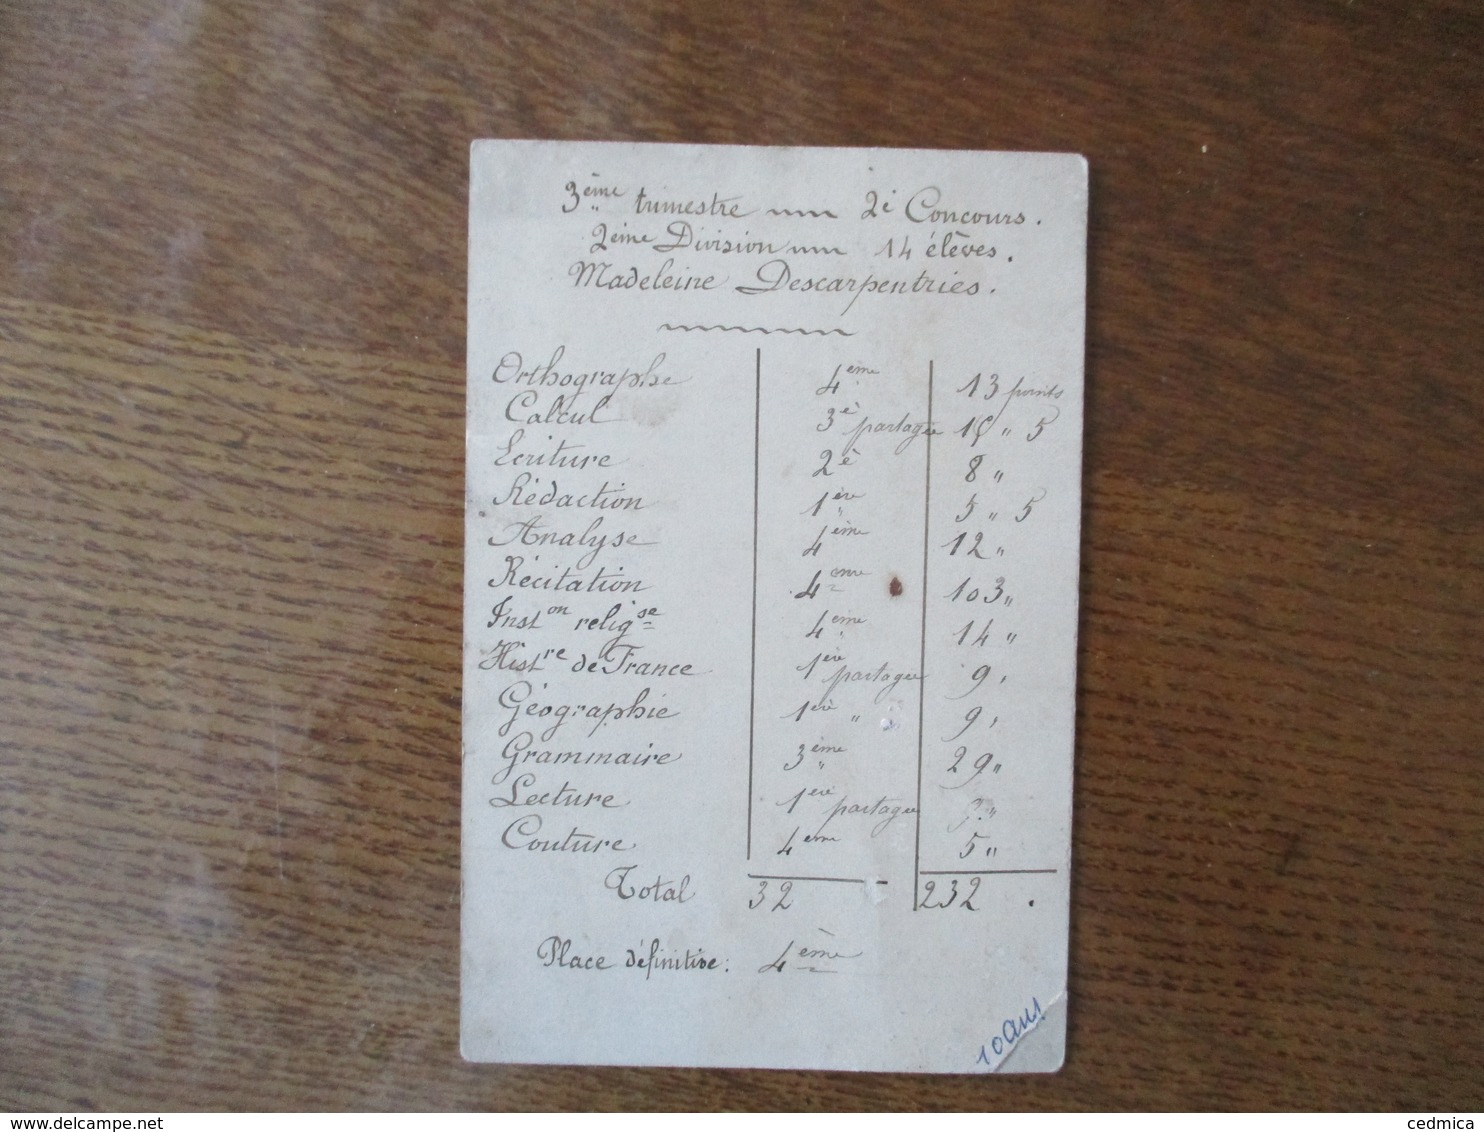 3ème trimestre 2è Concours.
2ème Division 14 élèves.
Madeleine Descarpentries.
Orthographe 4ème 13 points
Calcul 3è partagée 15 " 5
Ecriture 2è 8 "
Rédaction 1ère 5 " 5
Analyse 4ème 12 "
Récitation 4ème 103 "
Inston religse 4ème 14 "
Histre de France 1ère partagée 9 "
Géographie 1ère " 9 "
Grammaire 3ème 29 "
Lecture 1ère partagée "
Couture 4ème 5 "
Total 32 232 .
Place définitive : 4ème
10 ans
cedmica